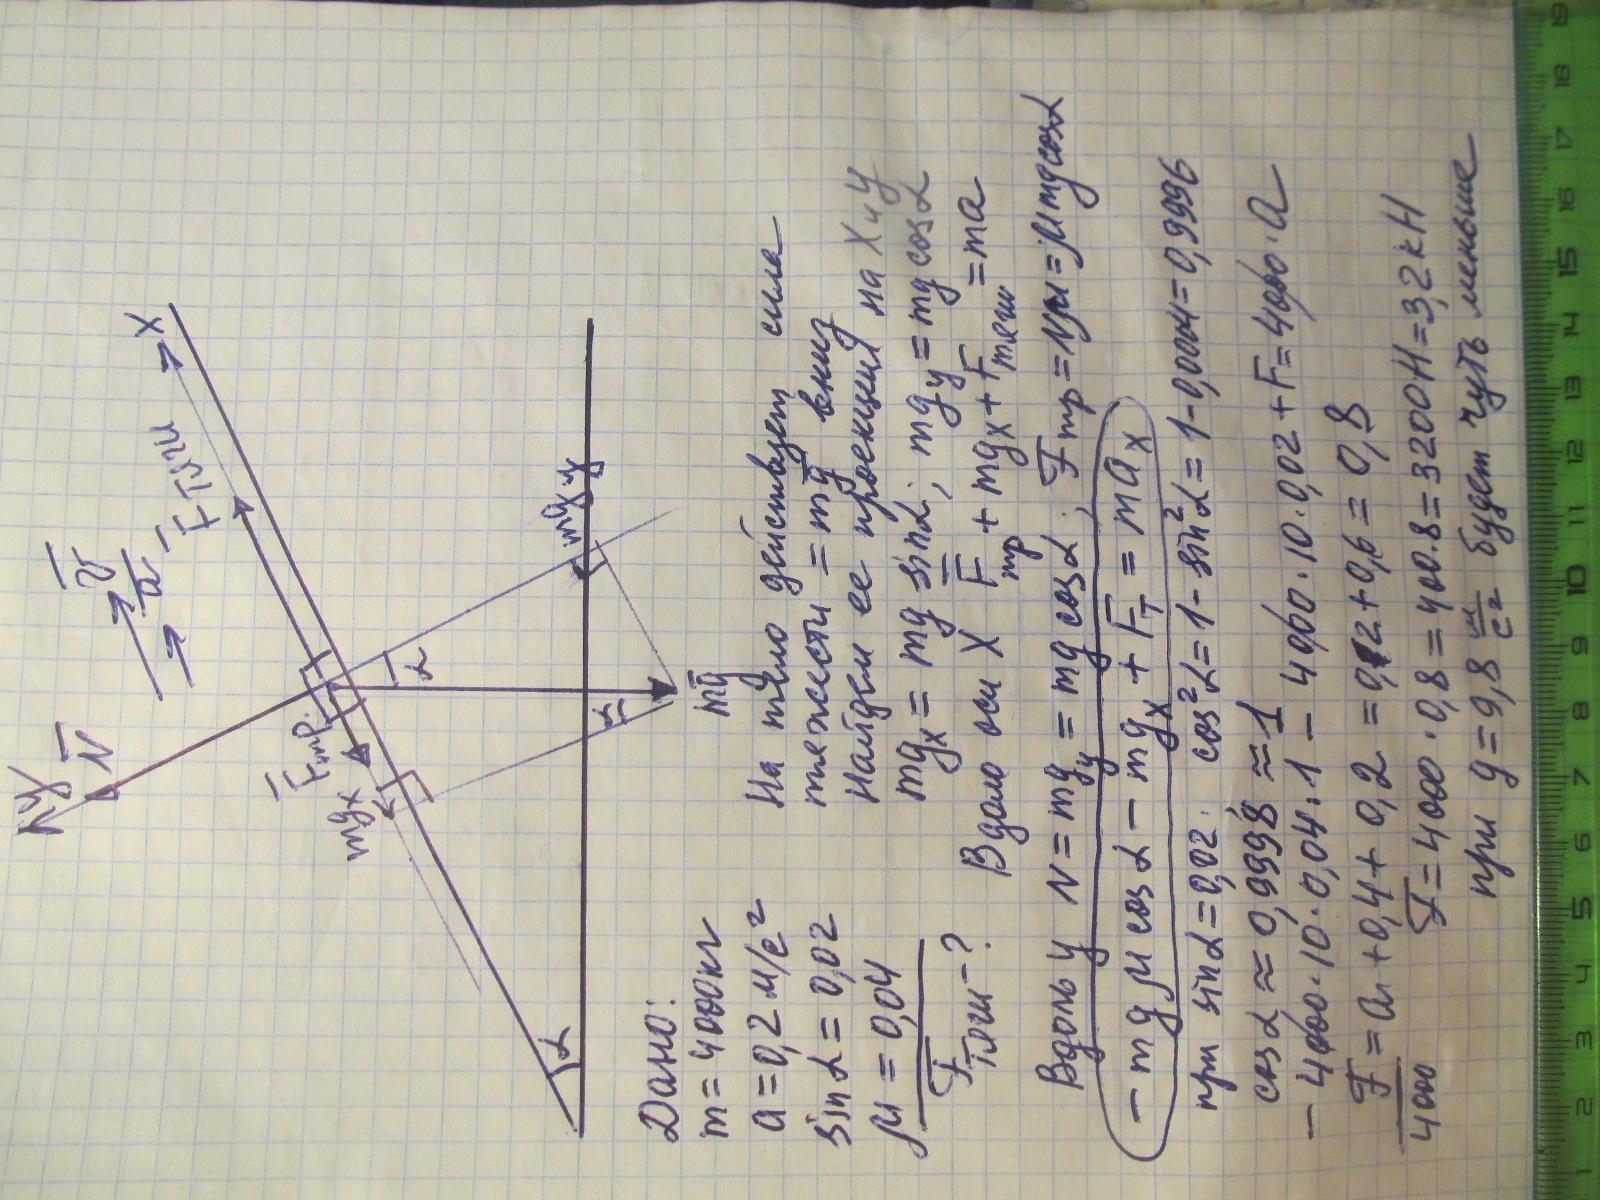 y
N̄
v̄
ā
F̄тяги
X
F̄тр
mgx
α
mgy
α
α
mḡ
Дано:
m = 4000кг
a = 0,2 м/с²
sin α = 0,02
μ = 0,04
F̄тяги - ?
На тело действует сила
тяжести = mḡ вниз
Найдем ее проекции на X и y
mgx = mg sin α; mgy = mg cos α
Вдоль оси X F̄тр + mgx + Fтяги = ma
Вдоль y N = mgy = mg cos α; Fтр = Nμ = μmg cos α
- mg μ cos α - mgx + FТ = max
при sin α = 0,02. cos²α = 1 - sin²α = 1 - 0,0004 = 0,9996
cos α ≈ 0,9998 ≈ 1
- 4000·10·0,04·1 - 4000·10·0,02 + F = 4000·a
F/4000 = a + 0,4 + 0,2 = 0,2 + 0,6 = 0,8
F = 4000·0,8 = 400·8 = 3200Н = 3,2кН
при g = 9,8 м/с² будет чуть меньше
1 2 3 4 5 6 7 8 9 10 11 12 13 14 15 16 17 18 19